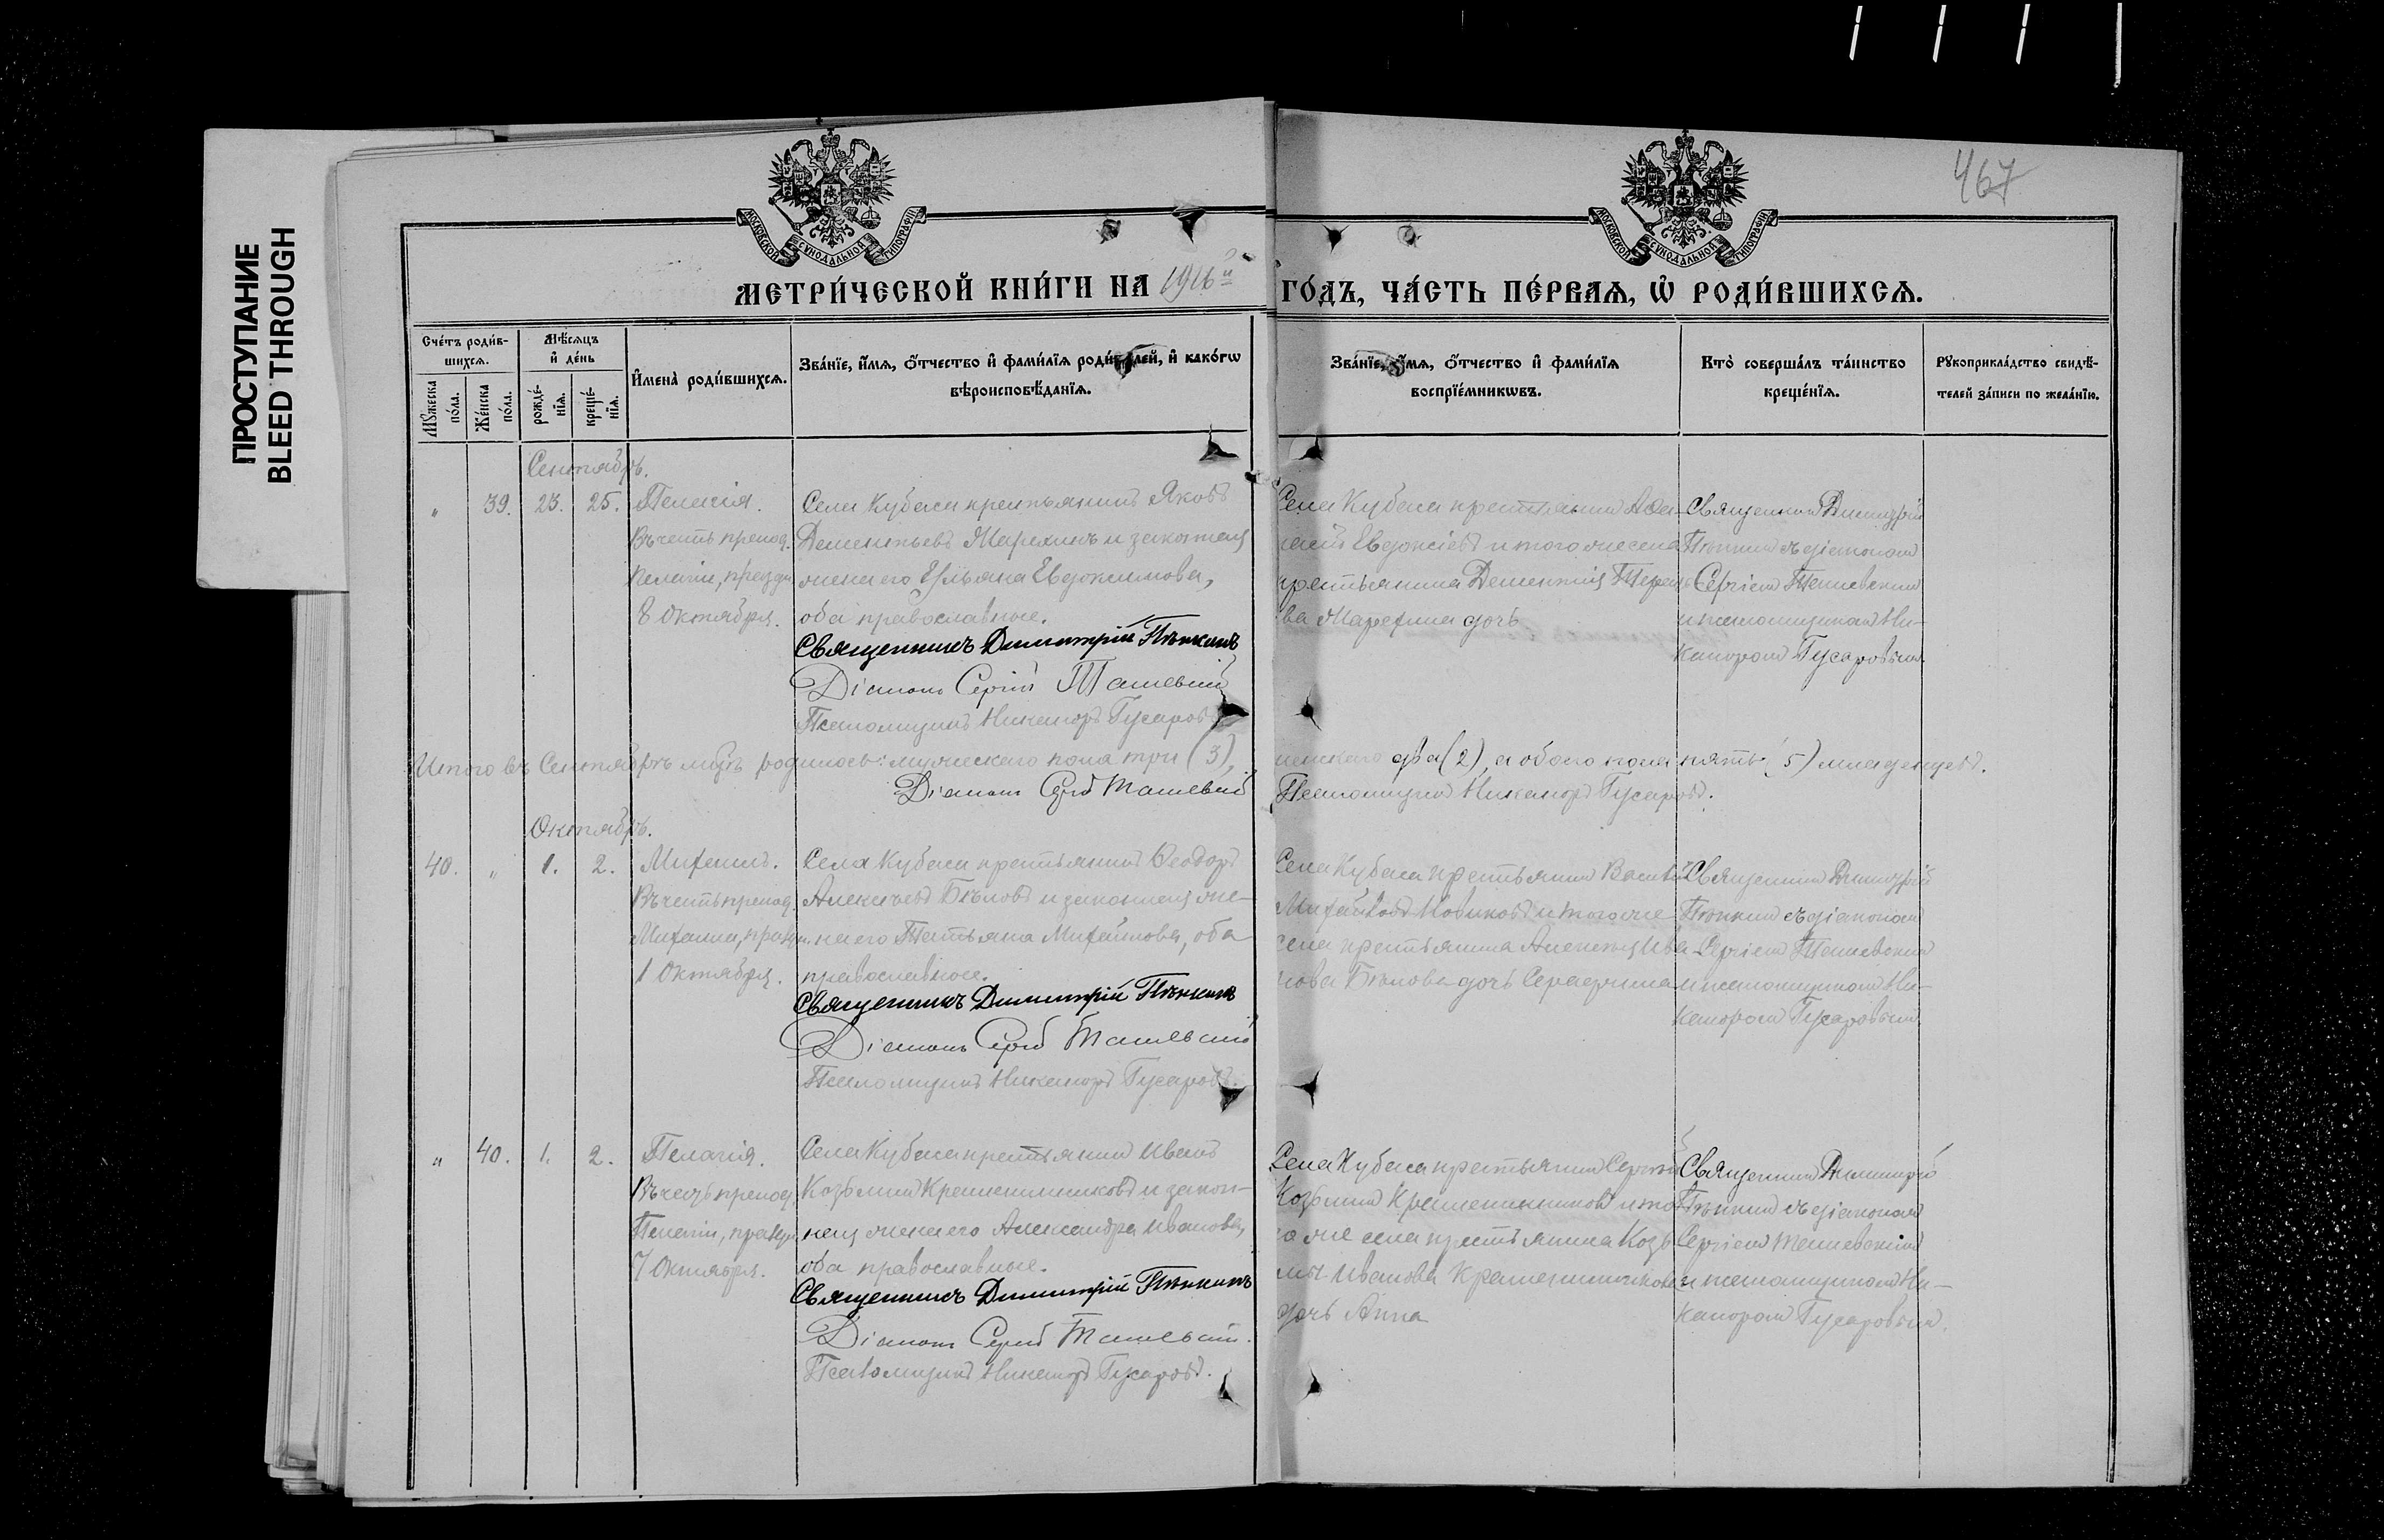 ПРОСТУПАНИЕ
BLEED THROUGH
467
МОСКОВСКОЙ СѴНОДАЛЬНОЙ ТИПОГРАФІИ
МОСКОВСКОЙ СѴНОДАЛЬНОЙ ТИПОГРАФІИ
МЕТРИ́ЧЕСКОЙ КНИ́ГИ НА 1916й ГО́ДЪ, ЧА́СТЬ ПЕ́РВАѦ, Ѽ РОДИ́ВШИХСѦ.
Сче́тъ роди́в-
шихсѧ.
Мꙋ́жеска
по́ла.
Же́нска
по́ла.
Мѣ́сѧцъ
и҆ де́нь
рожде́-
нїѧ.
креще́-
нїѧ.
И҆мена̀ роди́вшихсѧ.
Зва́нїе, и҆́мѧ, ѻ҆́тчество и҆ фами́лїѧ роди́телей, и҆ како́гѡ
вѣроисповѣ́данїѧ.
Зва́нїе, и҆́мѧ, ѻ҆́тчество и҆ фами́лїѧ
воспрїе́мникѡвъ.
Кто̀ соверша́лъ та́инство
креще́нїѧ.
Рꙋкоприкла́дство свидѣ́-
телей за́писи по жела́нїю.
Сентябрь.
" 39. 23. 25. Пелагія.
Въ честь препод.
Пелагіи, праздн.
8 Октября.
Села Кубаса крестьянинъ Яковъ
Дементьевъ и законная
жена его Ульяна Евдокимова,
оба православные.
Священникъ Димитрій Пѣнкинъ
Діаконъ Сергій
Псаломщикъ Никаноръ Гусаровъ
Села Кубаса крестьянинъ
Евдокіевъ и того же села
крестьянина Дементія
дочь
Священникъ Димитрій
Пѣнкинъ съ діакономъ
Сергіемъ
и псаломщикомъ Ни-
каноромъ Гусаровымъ.
Итого въ Сентябрѣ мцѣ родилось: мужескаго пола три (3), женскаго два (2), а обоего пола пять (5) младенцевъ.
Діаконъ Сергій
Псаломщикъ Никаноръ Гусаровъ.
Октябрь.
40. " 1. 2. Михаилъ.
Въ честь препод.
Михаила, праздн.
1 Октября.
Села Кубаса крестьянинъ Ѳеодоръ
Алексѣевъ Бѣловъ и законная же-
на его Татьяна Михайлова, оба
православные.
Священникъ Димитрій Пѣнкинъ
Діаконъ Сергій
Псаломщикъ Никаноръ Гусаровъ.
Села Кубаса крестьянинъ Василій
Михайловъ Новиковъ и того же
села крестьянина Алексѣя Ива-
нова Бѣлова дочь Серафима
Священникъ Димитрій
Пѣнкинъ съ діакономъ
Сергіемъ
и псаломщикомъ Ни-
каноромъ Гусаровымъ.
" 40. 1. 2. Пелагія.
Въ честь препод.
Пелагіи, праздн.
7 Октября.
Села Кубаса крестьянинъ Иванъ
Козьминъ Крашенинниковъ и закон-
ная жена его Александра Иванова,
оба православные.
Священникъ Димитрій Пѣнкинъ
Діаконъ Сергій
Псаломщикъ Никаноръ Гусаровъ.
Села Кубаса крестьянинъ Сергѣй
Козьминъ Крашенинниковъ и то-
го же села крестьянина Козь-
мы Иванова Крашенинникова
дочь Анна
Священникъ Димитрій
Пѣнкинъ съ діакономъ
Сергіемъ
и псаломщикомъ Ни-
каноромъ Гусаровымъ.